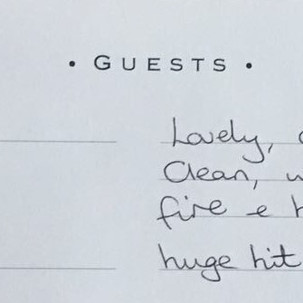 • GUESTS •
Lovely,
Clean,
fire e
huge hit